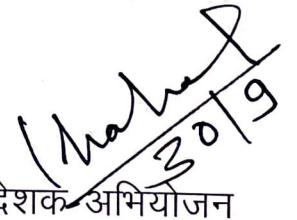 30/9
देशक अभियोजन